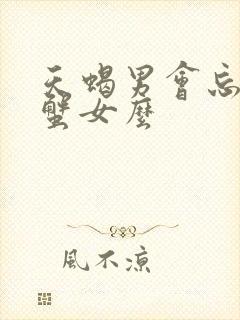 天蝎男會忘
蟹女麼
風不涼